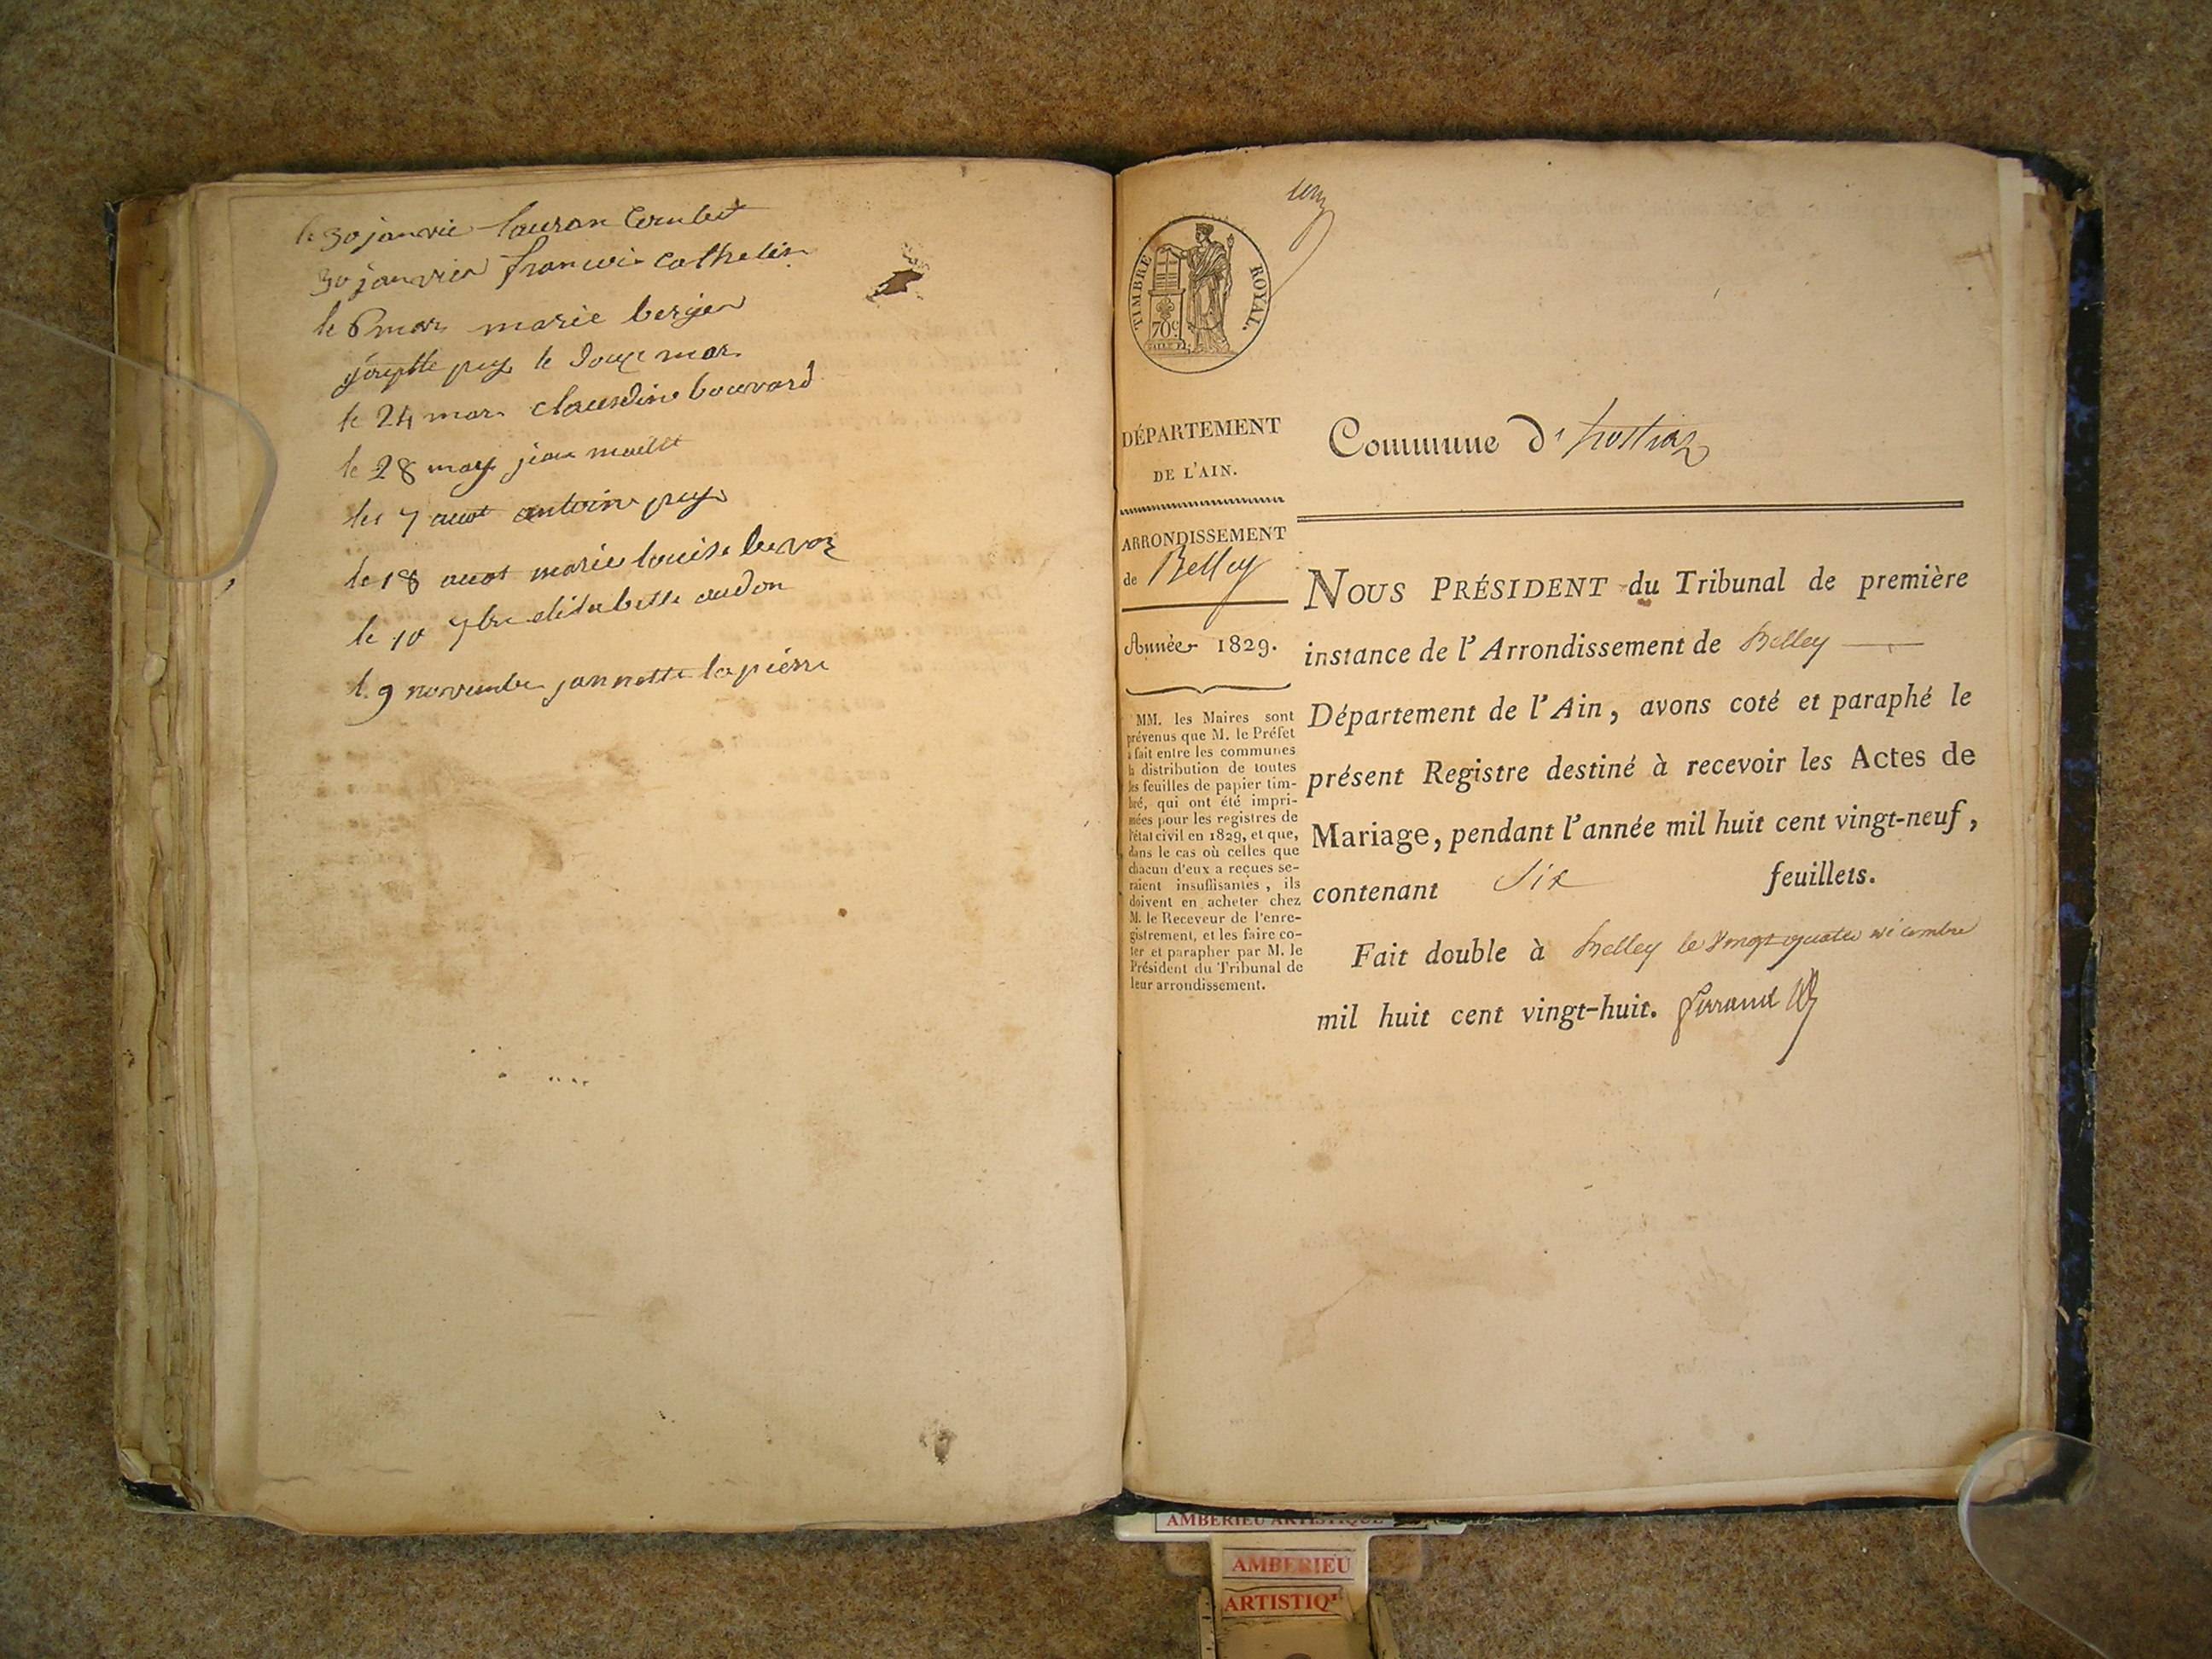 le 30 janvie lauran Cornbet
30 janvier francois cathelin
le 6 mar marie berger
josephte puy le douze mar
le 24 mar claudine bouvard
le 28 may jean
les 7 auot antoine puy
le 18 auot marie louise
le 10 7bre elisabette audon
le 9 novembre jannette lapierre
TIMBRE ROYAL.
70c
DÉPARTEMENT
DE L'AIN.
ARRONDISSEMENT
de Belley
Année 1829.
MM. les Maires sont
prévenus que M. le Préfet
a fait entre les communes
la distribution de toutes
les feuilles de papier tim-
bré, qui ont été impri-
mées pour les registres de
l'état civil en 1829, et que,
dans le cas où celles que
chacun d'eux a reçues se-
raient insuffisantes, ils
doivent en acheter chez
M. le Receveur de l'enre-
gistrement, et les faire co-
ter et parapher par M. le
Président du Tribunal de
leur arrondissement.
Commune d'hostiaz
NOUS PRÉSIDENT du Tribunal de première
instance de l'Arrondissement de Belley
Département de l'Ain, avons coté et paraphé le
présent Registre destiné à recevoir les Actes de
Mariage, pendant l'année mil huit cent vingt-neuf,
contenant Six feuillets.
Fait double à Belley le vingt quatre
mil huit cent vingt-huit.
AMBERIEU ARTISTIQUE
AMBERIEU
ARTISTIQ